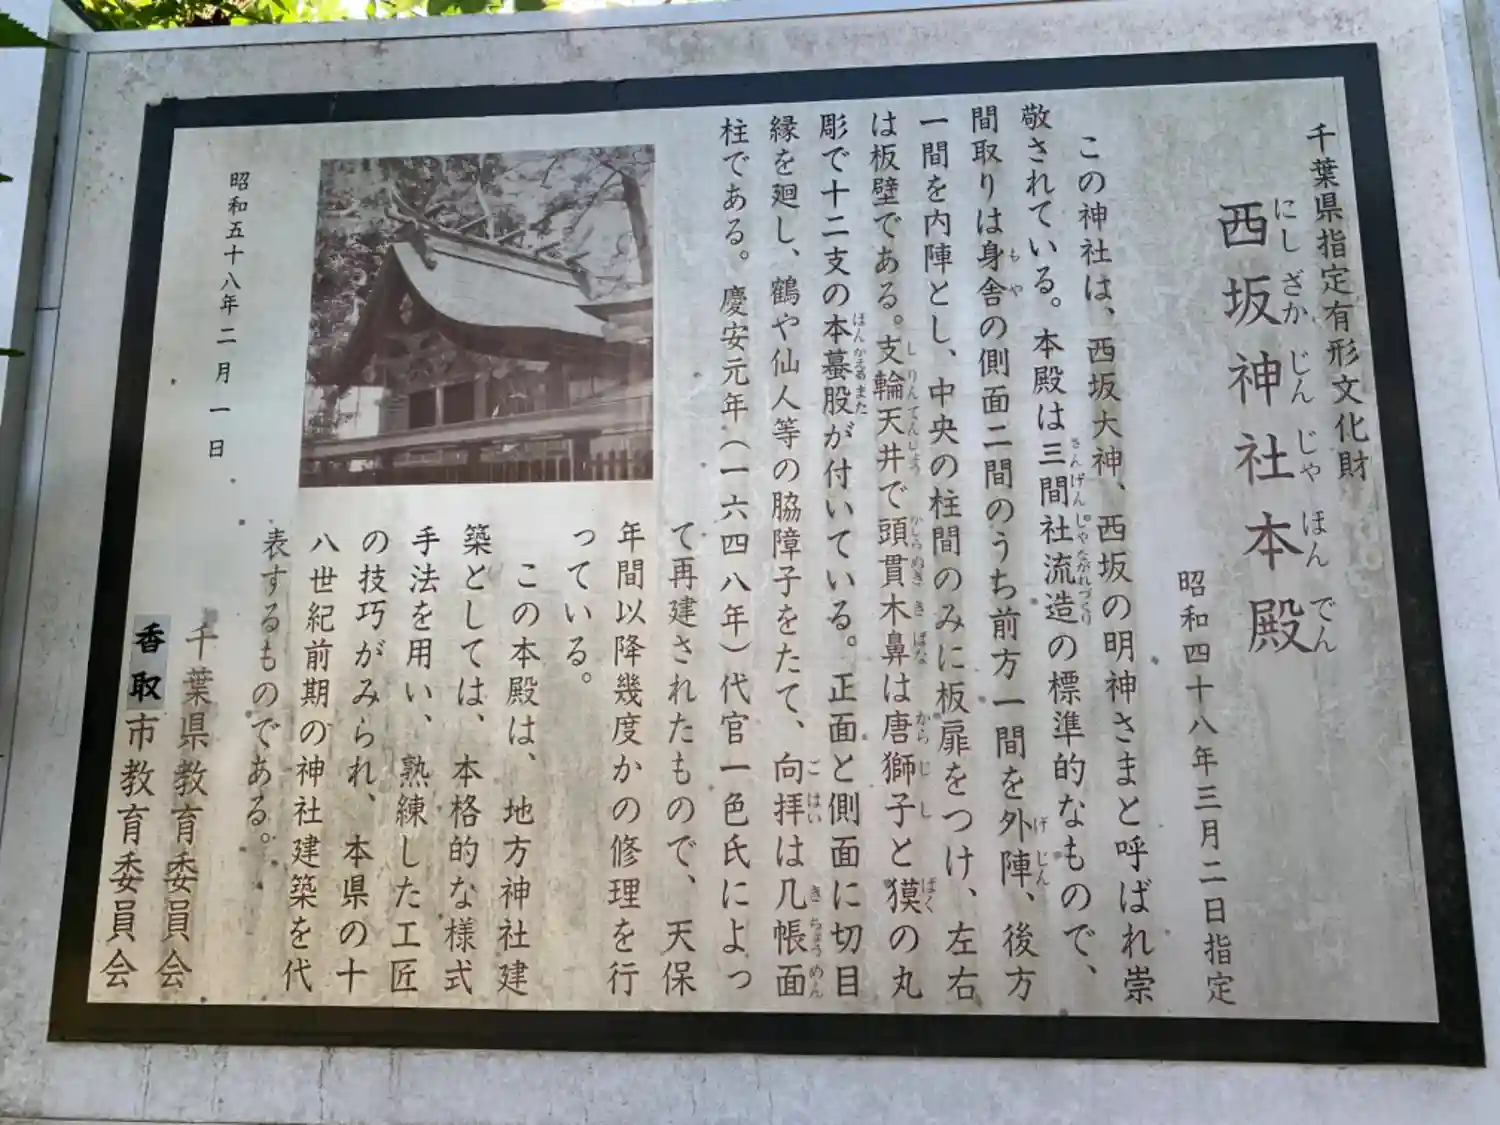 千葉県指定有形文化財
西坂神社本殿
にしざかじんじゃほんでん
昭和四十八年三月二日指定
この神社は、西坂大神、西坂の明神さまと呼ばれ崇
敬されている。本殿は三間社流造の標準的なもので、
さんげんしゃながれづくり
間取りは身舎の側面二間のうち前方一間を外陣、後方
もや
げじん
一間を内陣とし、中央の柱間のみに板扉をつけ、左右
は板壁である。支輪天井で頭貫木鼻は唐獅子と獏の丸
しりんてんじょう
かしらぬききばな
からじし
ばく
彫で十二支の本蟇股が付いている。正面と側面に切目
ほんかえるまた
縁を廻し、鶴や仙人等の脇障子をたて、向拝は几帳面
ごはい
きちょうめん
柱である。慶安元年（一六四八年）代官一色氏によっ
て再建されたもので、天保
年間以降幾度かの修理を行
っている。
この本殿は、地方神社建
築としては、本格的な様式
手法を用い、熟練した工匠
の技巧がみられ、本県の十
八世紀前期の神社建築を代
表するものである。
昭和五十八年二月一日
千葉県教育委員会
香取市教育委員会